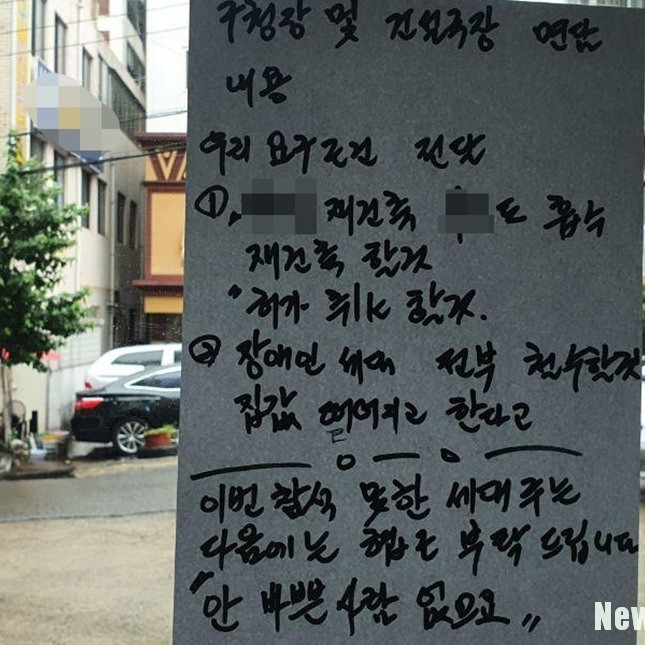 구청장 및 건설국장 면담
내용
우리 요구조건 전달
①. 재건축 도 흡수
재건축 할것
" 허가 취소 할것.
② 장애인 세대 전부 철수할것
집값 떨어지고 한다고
이번 참석 못한 세대주는
다음에는 협조 부탁 드립니다
"안 바쁜 사람 없으요"
New